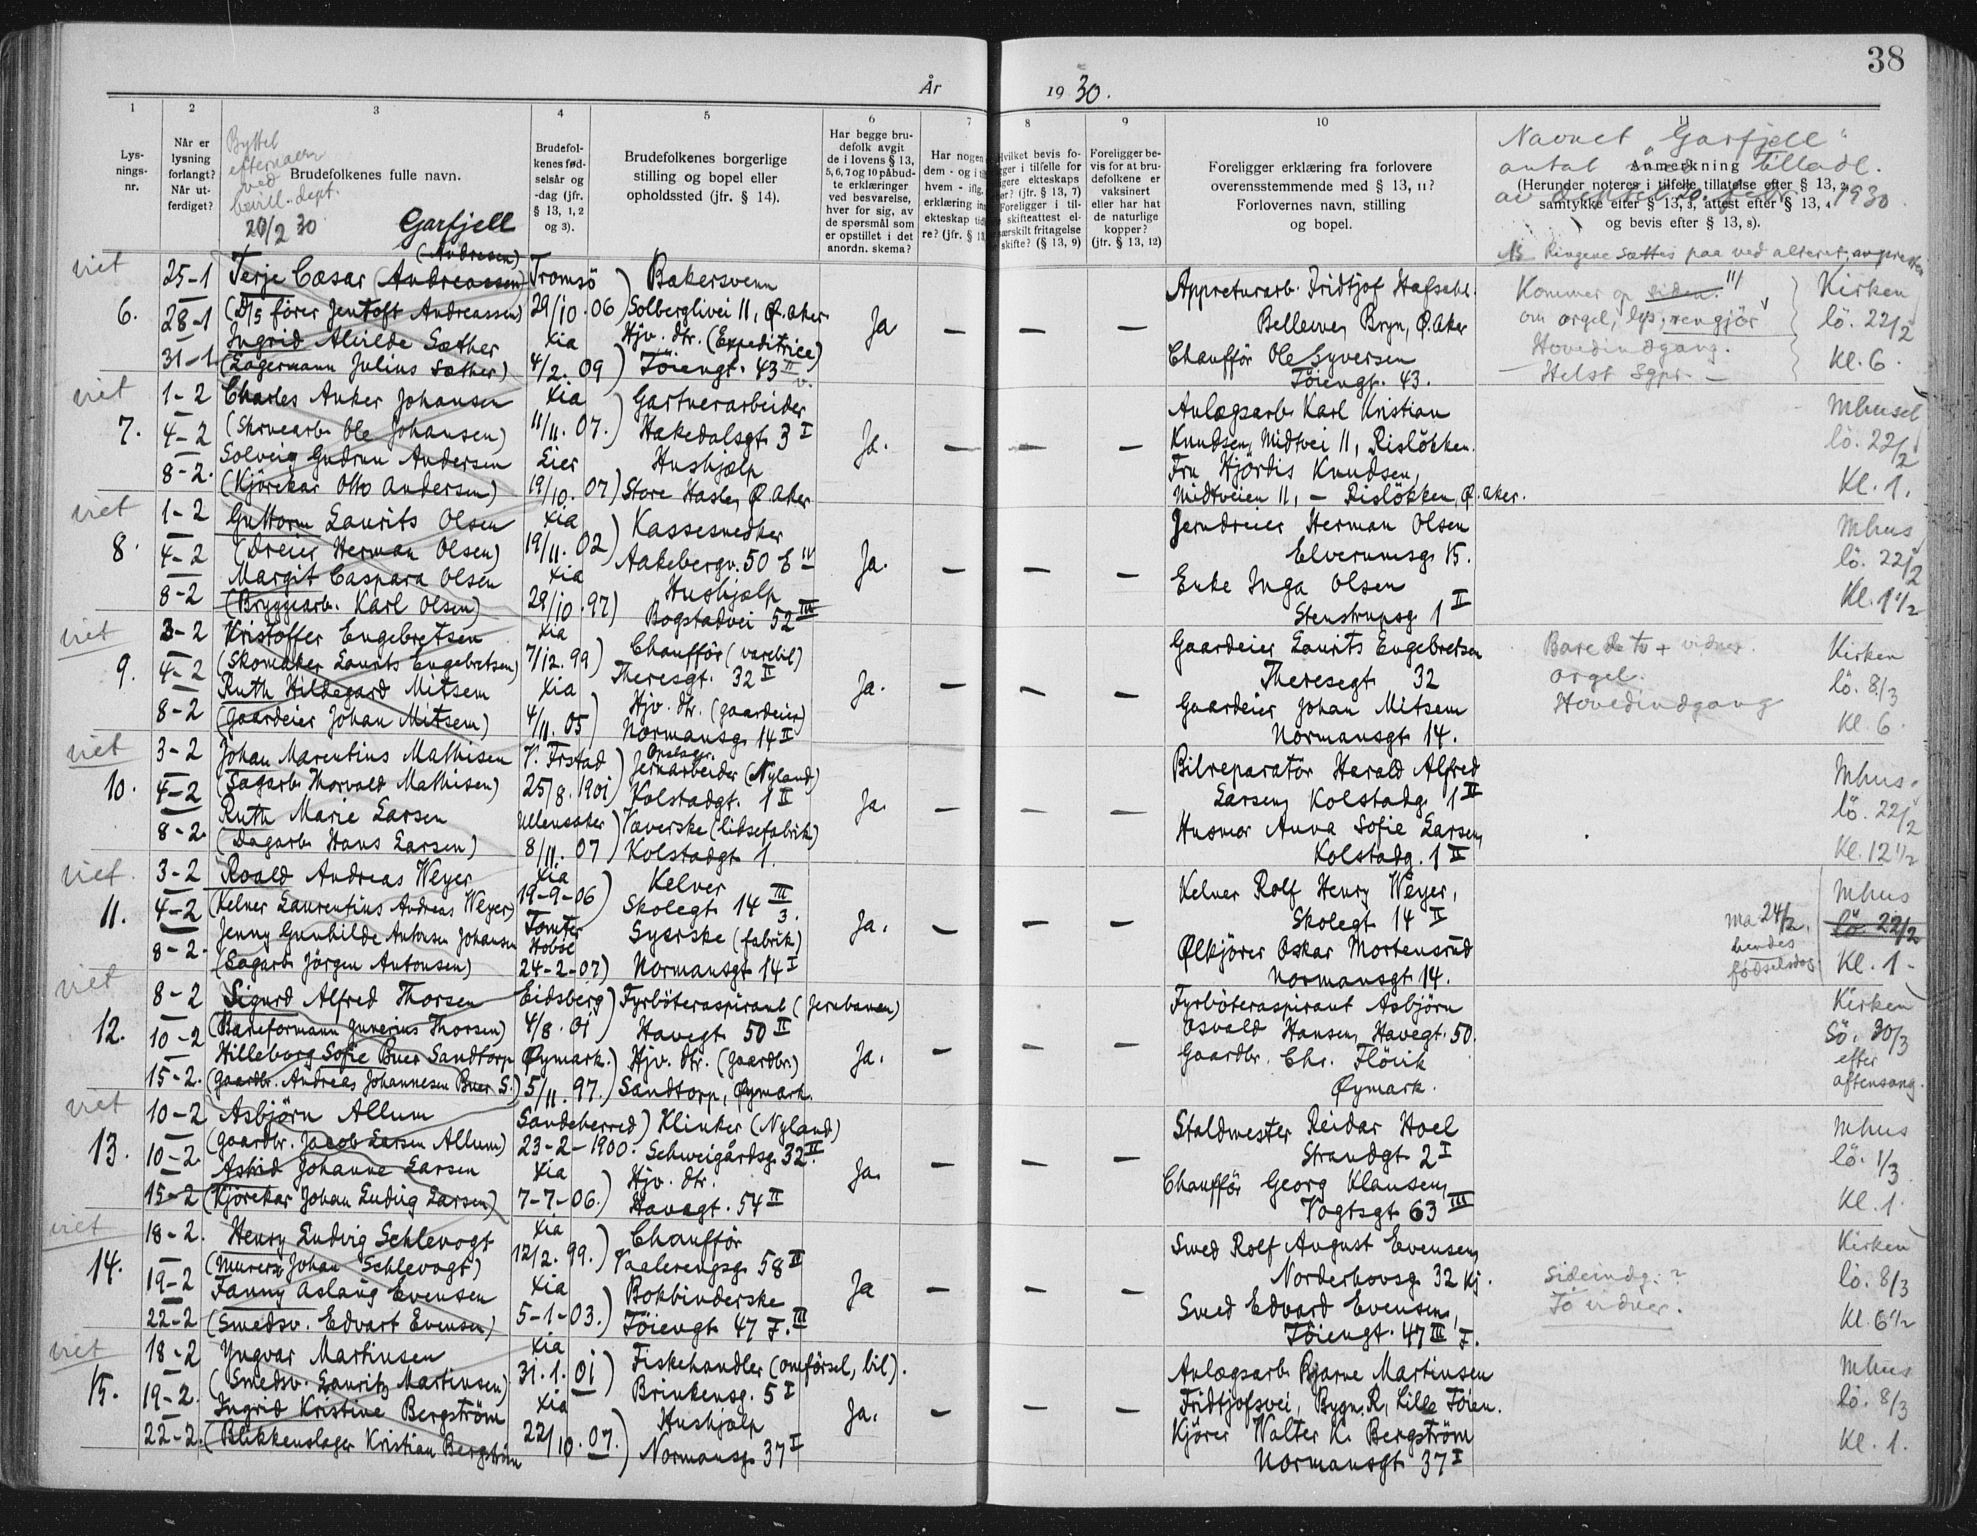 38
År 1930.
1 2 3 4 5 6 7 8 9 10 11
Lysningsnr.
Når er lysning forlangt? Når utferdiget?
Byttet efternavn ved bevill. dept. 20/2 30
Brudefolkenes fulle navn.
Brudefolkenes fødselsår og -dag (jfr. § 13, 1, 2 og 3).
Brudefolkenes borgerlige stilling og bopel eller opholdssted (jfr. § 14).
Har begge brudefolk avgit de i lovens § 13, 5, 6, 7 og 10 påbudte erklæringer ved besvarelse, hver for sig, av de spørsmål som er opstillet i det anordn. skema?
Foreligger bevis for at brudefolkene er vaksinert eller har hat de naturlige kopper? (jfr. § 13, 12)
Foreligger erklæring fra forlovere overensstemmende med § 13, 11? Forlovernes navn, stilling og bopel.
Navnet "Garfjell"
antat tilladl.
1930
Anmerkning
(Herunder noteres i tilfelle tillatelse efter § 13, 2, samtykke efter § 13, 3, attest efter § 13, 4 og bevis efter § 13, 8).
NB Ringene sættes paa ved alteret, av presten
viet
6.
25-1
28-1
31-1
Garfjell
(Andresen)
Terje Cæsar (Andreassen)
(D/S fører Jentoft Andreassen)
Ingrid Alvilde Sæther
(Lagermann Julius Sæther)
Tromsö
29/10. 06)
Xia
4/2. 09)
Bakersvenn
Solberglivei 11, Ø. aker
Hjv. dtr. (Expeditrice)
Töiengt. 43 II
Ja
—
—
—
Appreturarb. Fridtjof Hafsahl.
Bellevue, Bryn, Ø. Aker
Chaufför Ole Syversen
Töiengt. 43.
Kommer op siden.
om orgel, lys, rengjör
Hovedindgang.
Kirken
lö. 22/2
Kl. 6.
viet
7.
1-2
4-2
8-2.
Charles Anker Johansen
(Skruearb. Ole Johansen)
Solveig Gudrun Andersen
(Kjörekar Otto Andersen)
Xia
11/11. 07.)
Eier
19/10. 07)
Gartnerarbeider
Hakedalsgt. 3 I
Hushjælp
Store Hasle, Ø. Aker
Ja.
—
—
—
Anlægsarb. Karl Kristian
Knudsen, Midtvei 11, Rislökken.
Fru Hjördis Knudsen,
Midtveien 11, — Rislökken, Ø. aker.
Mhus
lö. 22/2
Kl. 1.
viet
8.
1-2
4-2
8-2
Guttorm Laurits Olsen
(Dreier Herman Olsen)
Margit Caspara Olsen
(Bryggearb. Karl Olsen)
Xia
19/11. 02)
Xia
29/10. 97)
Kassesnedker
Aakebergv. 50 E IV
Hushjælp
Bogstadvei 52 III
Ja.
—
—
—
Jerndreier Herman Olsen
Elverumsg. 15.
Enke Inga Olsen
Stenstrupsg. 1 II
Mhus
lö. 22/2
Kl. 1 1/2
viet
9.
3-2
4-2
8-2
Kristoffer Engebretsen
(Skomaker Laurits Engebretsen)
Ruth Hildegard Mitsem
(Gaardeier Johan Mitsem)
Xia
7/12. 99)
Xia
4/11. 05)
Chaufför (varebil)
Theresegt. 32 II
Hjv. dtr. (gaardeier)
Normansg. 14 II
Ja.
—
—
—
Gaardeier Laurits Engebretsen
Theresegt 32
Gaardeier Johan Mitsem
Normansgt. 14.
Bare de to + vidner.
orgel.
Hovedindgang
Kirken
lö. 8/3
Kl 6.
viet
10.
3-2
4-2
8-2.
Johan Marentius Mathisen
(Sagarb. Thorvald Mathisen)
Ruth Marie Larsen
(Dagarb. Hans Larsen)
25/8. 1901
Ullensaker
8/11. 07)
Jernarbeider (Nyland)
Kolstadgt. 1 II
Væverske (lidsefabrik)
Kolstadgt 1.
Ja.
—
—
—
Bilreparatör Harald Alfred
Larsen, Kolstadg. 1 II
Husmor Anna Sofie Larsen,
Kolstadg. 1 II
Mhus.
lö. 22/2
Kl. 12 1/2
viet.
11.
3-2
4-2
8-2.
Roald Andreas Weyer
(Kelner Laurentius Andreas Weyer)
Jenny Gunhilde Antonsen Johansen
(Sagarb. Jörgen Antonsen)
Xia
19-9-06)
Tomter
Hobøl
24-2-07)
Kelner
Skolegt 14 III
3.
Syerske (fabrik)
Normansgt. 14 I
Ja.
—
—
—
Kelner Rolf Henry Weyer,
Skolegt 14 II
Ølkjörer Oskar Mortensrud
Normansgt 14.
ma 24/2.
hendes
födselsdag
Mhus
lö. 22/2
Kl. 1 -
viet
12.
8-2
10-2
15-2.
Sigurd Alfred Thorsen
(Baneformann Gunerius Thorsen)
Hilleborg Sofie Buer Sandtorp
(Gaardbr. Andreas Johannesen Buer S.)
Eidsberg)
4/8. 01)
Øymark.)
5/11. 97.)
Fyrböteraspirant (Jernbanen)
Havegt. 50 II
Hjv. dtr. (gaardbr.)
Sandtorp, Øymark.
Ja.
—
—
—
Fyrböteraspirant Asbjörn
Osvald Hansen, Havegt. 50.
Gaardbr. Chr. Flövik
Øymark.
Kirken
Sö. 30/3
efter
aftensang.
viet
13.
10-2
10-2.
15-2
Asbjörn Allum
(gaardbr. Jacob Larsen Allum)
Astrid Johanne Larsen
(Kjörekar Johan Ludvig Larsen)
Sandeherred)
23-2-1900.
Xia
7-7-06.)
Klinker (Nyland)
Schweigårdsg. 32 II.
Hjv. dtr.
Havegt. 54 II
Ja.
—
—
—
Staldmester Reidar Hoel
Strandgt 2 I
Chaufför Georg Klausen,
Vogtsgt 63 III
Mhus
lö. 1/3
Kl. 1.
viet
14.
18-2.
19-2
22-2
Henry Ludvig Schlevogt
(Murer Johan Schlevogt)
Fanny Aslaug Evensen
(Smedsv. Edvart Evensen)
Xia
12/2. 99.)
Xia
5-1-03.)
Chaufför
Vaalerengsg. 58 II
Bokbinderske
Töiengt 47 F. III
Ja
—
—
—
Smed Rolf August Evensen,
Norderhovsg. 32 Kj.
Smed Edvard Evensen,
Töiengt. 47 III F.
Sideindg. ?
To vidner.
Kirken
lö. 8/3
Kl 6 1/2
viet
15.
18-2
19-2.
22-2.
Yngvar Martinsen
(Smedsv. Lauritz Martinsen)
Ingrid Kristine Bergström
(Blikkenslager Kristian Bergström
Xia
31. 1. 01)
Xia
22/10. 07.)
Fiskehandler (omförsel, bil).
Brinkensg. 5 I
Hushjælp
Normansg. 37 I
Ja.
—
—
—
Anlægsarb. Bjarne Martinsen
Fridtjofsvei, Bygn. R, Lille Töien.
Kjörer Walter K. Bergström
Normansgt 37 I
Mhus
lö. 8/3
Kl. 1.